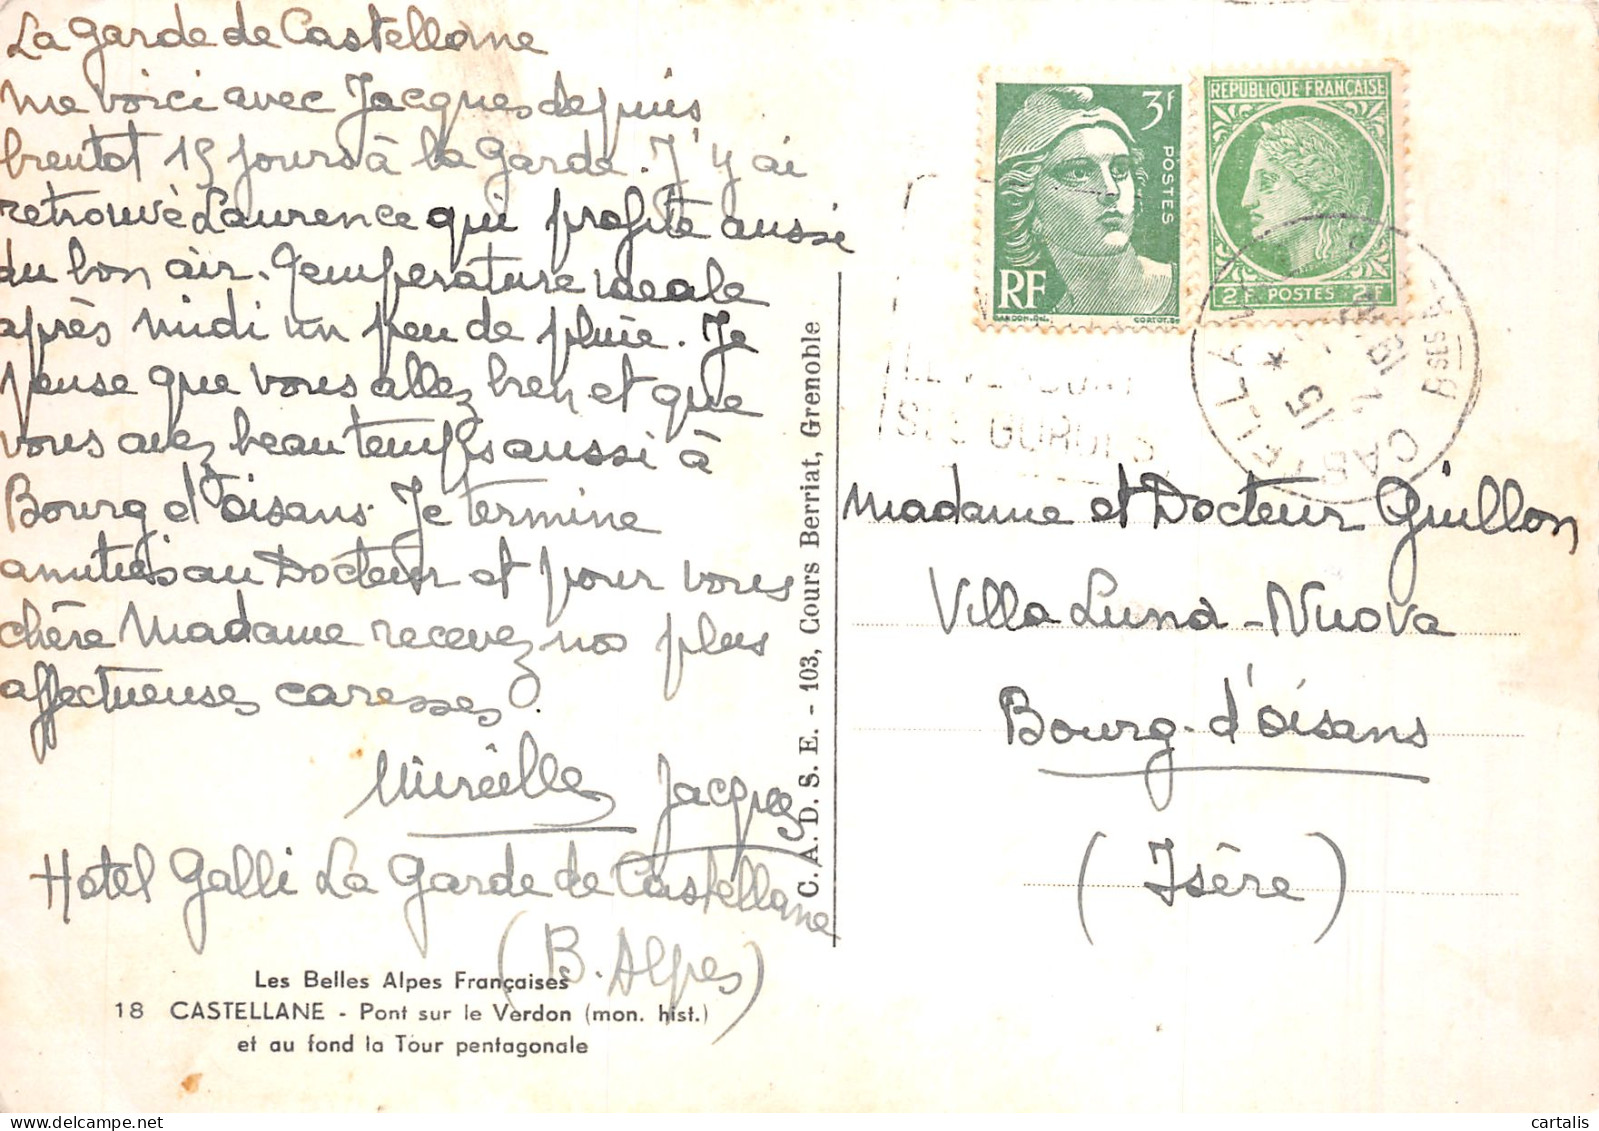 La Garde de Castellane
me voici avec Jacques depuis
bientot 15 jours à la Garde. J'y ai
retrouvè Laurence qui profite aussi
du bon air. Température idéale
après midi un peu de pluie. Je
pense que vous allez bien et que
vous avez beau temps aussi à
Bourg d'oisans. Je termine
amitiés au Docteur et pour vous
chère Madame recevez nos plus
affectueuses caresses.
Mireille Jacques
Hotel Galli La Garde de Castellane
(B. Alpes)
Les Belles Alpes Françaises
18 CASTELLANE - Pont sur le Verdon (mon. hist.)
et au fond la Tour pentagonale
C. A. D. S. E. - 103, Cours Berriat, Grenoble
3F
POSTES
RF
GANDON.DEL.
CORTOT.SC
REPUBLIQUE FRANÇAISE
2 F. POSTES 2 F
LE VERDON
SES GORGES
CASTELLANE
15
Bses A
Madame et Docteur Guillon
Villa Luna-Nuova
Bourg-d'oisans
(Isère)
cartalis